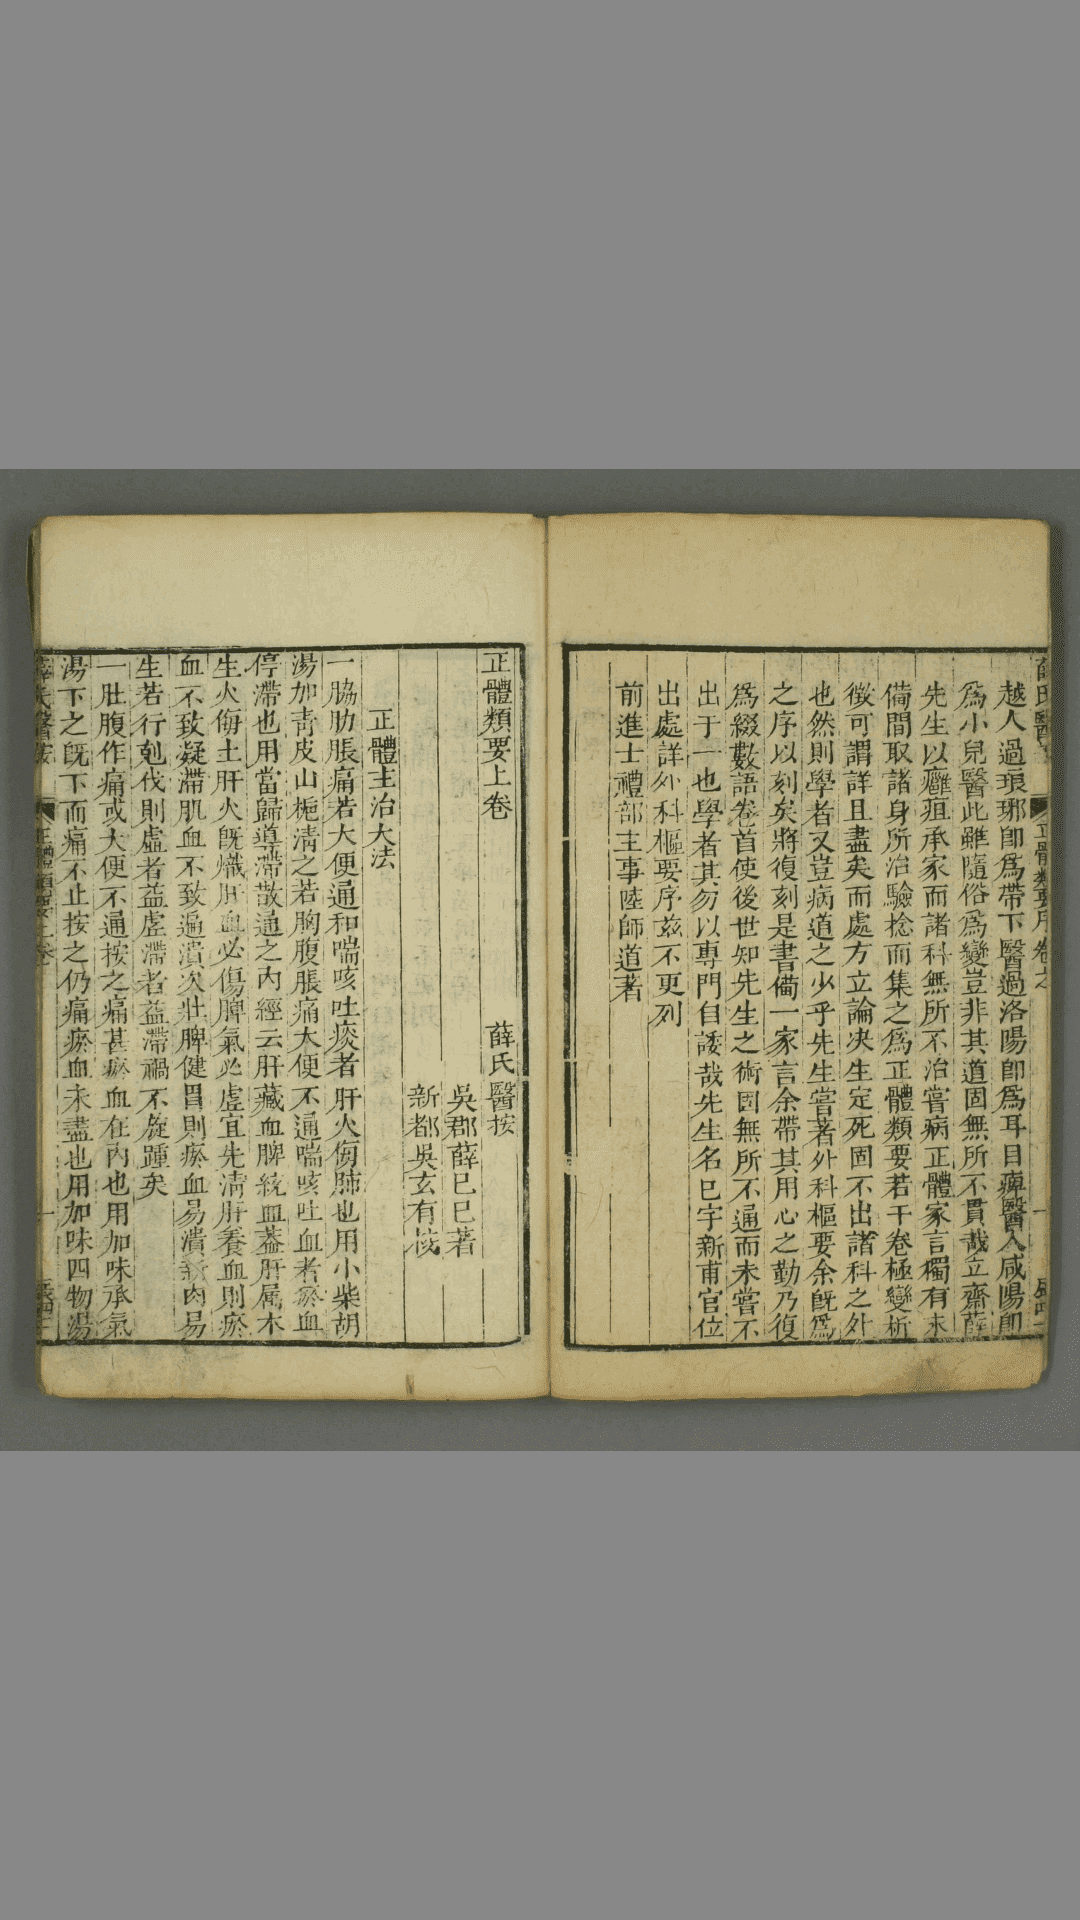 越人過琅琊卽爲帶下醫過洛陽卽爲耳目痺醫入咸陽卽
爲小兒醫此雖隨俗爲變豈非其道固無所不貫哉立齋薛
先生以癰疽承家而諸科無所不治嘗病正體家言獨有未
備間取諸身所治驗捴而集之爲正體類要若干卷極變析
徴可謂詳且盡矣而處方立論决生定死固不出諸科之外
也然則學者又豈病道之少乎先生嘗著外科樞要余旣爲
之序以刻矣將復刻是書備一家言余帶其用心之勤乃復
爲綴數語卷首使後世知先生之術固無所不通而未嘗不
出于一也學者其勿以專門自諉哉先生名已字新甫官位
出處詳外科樞要序玆不更列
前進士禮部主事陸師道著
正體類要上卷 薛氏醫按
吳郡薛已已著
新都吳玄有校
正體主治大法
一脇肋脹痛若大便通和喘咳吐痰者肝火侮肺也用小柴胡
湯加靑皮山梔淸之若胸腹脹痛大便不通喘咳吐血者瘀血
停滯也用當歸導滯散通之內經云肝藏血脾統血葢肝属木
生火侮土肝火旣熾肝血必傷脾氣必虛宜先淸肝養血則瘀
血不致凝滯肌血不致遍潰次壯脾健胃則瘀血易潰新肉易
生若行剋伐則虛者益虛滯者益滯禍不旋踵矣
一肚腹作痛或大便不通按之痛甚瘀血在內也用加味承氣
湯下之旣下而痛不止按之仍痛瘀血未盡也用加味四物湯
薛氏醫按 正體類要上卷 一